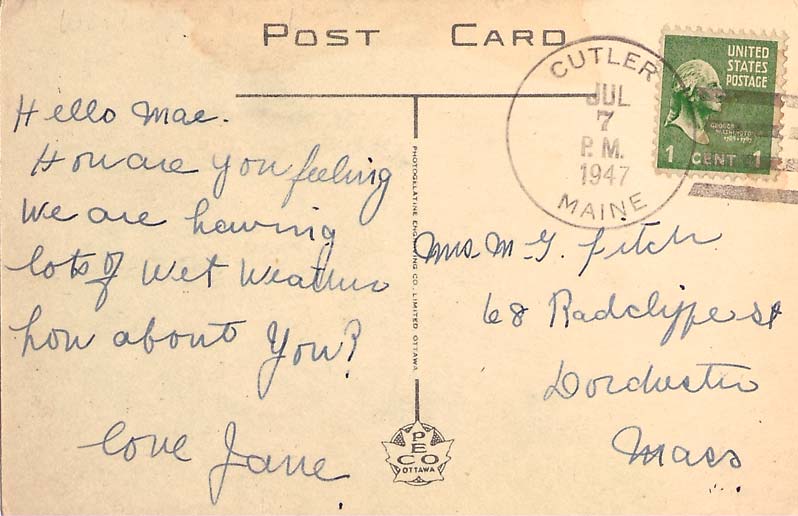 POST CARD
CUTLER
JUL
7
P.M.
1947
MAINE
UNITED
STATES
POSTAGE
GEORGE
WASHINGTON
1 CENT 1
Hello Mae.
How are you feeling
We are having
lots of Wet Weather
how about You?
love Jane
PHOTOGELATINE ENGRAVING CO. LIMITED OTTAWA
PECO
OTTAWA
Mrs. M. G. Fitch
68 Radclyffe st
Dorchester
Mass